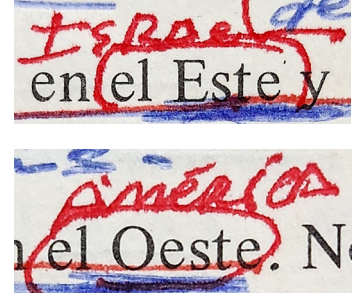 Israel
en el Este y
América
el Oeste. N